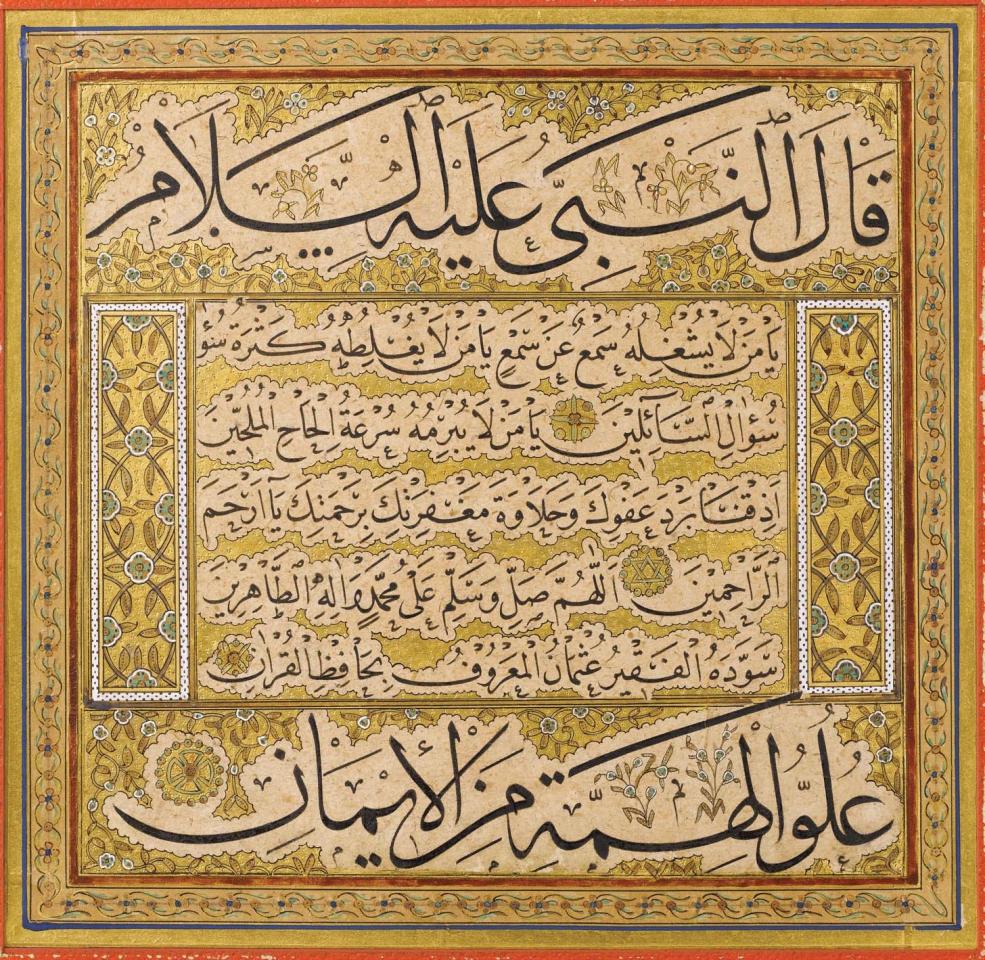 قَالَ النَّبِيُّ عَلَيْهِ السَّلَامُ
يَا مَنْ لَا يَشْغَلُهُ سَمْعٌ عَنْ سَمْعٍ يَا مَنْ لَا يُغْلِطُهُ كَثْرَةُ سُؤ
سُؤَالِ السَّآئِلِينَ يَا مَنْ لَا يُبْرِمُهُ سُرْعَةُ اِلْحَاحِ الْمُلِحِّينَ
اَذِقْنَا بَرْدَ عَفْوِكَ وَحَلَاوَةَ مَغْفِرَتِكَ بِرَحْمَتِكَ يَا اَرْحَمَ
الرَّاحِمِينَ اَللّٰهُمَّ صَلِّ وَسَلِّمْ عَلَى مُحَمَّدٍ وَاٰلِهِ الطَّاهِرِينَ
سَوَّدَهُ الْفَقِيرُ عُثْمَانُ الْمَعْرُوفُ بِحَافِظِ الْقُرْاٰنِ
عُلُوُّ الْهِمَّةِ مِنَ الْإِيمَانِ